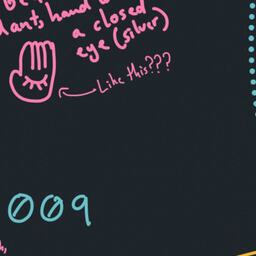 hand
a closed
eye (silver)
Like this???
009